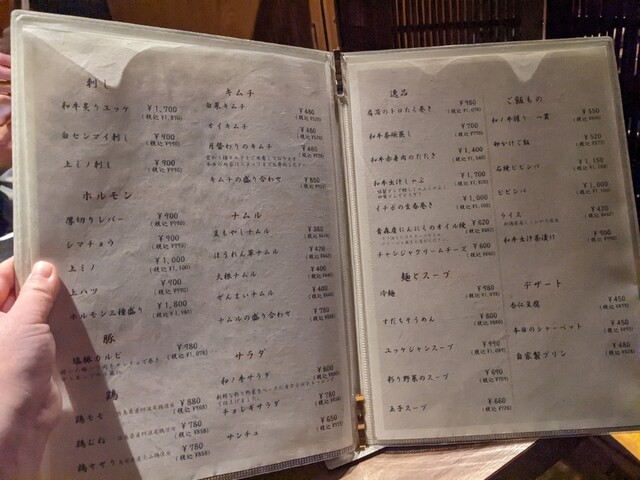 刺し
和牛炙りユッケ ¥1,700
(税込¥1,870)
白センマイ刺し ¥900
(税込¥990)
上ミノ刺し ¥900
(税込¥990)
ホルモン
厚切りレバー ¥900
(税込¥990)
シマチョウ ¥900
(税込¥990)
上ミノ ¥1,000
(税込¥1,100)
上ハツ ¥900
(税込¥990)
ホルモン三種盛り ¥1,800
(税込¥1,980)
豚
塩豚カルビ ¥980
(税込¥1,078)
鶏
鶏もも ¥880
(税込¥968)
鶏むね ¥780
(税込¥858)
鶏せせり ¥780
(税込¥858)
キムチ
白菜キムチ ¥480
(税込¥528)
オイキムチ ¥480
(税込¥528)
月替わりのキムチ ¥480
(税込¥528)
キムチの盛り合わせ ¥850
ナムル
まもやしナムル ¥380
ほうれん草ナムル ¥420
大根ナムル ¥400
(税込¥440)
ぜんまいナムル ¥400
(税込¥440)
ナムルの盛り合わせ ¥780
(税込¥858)
サラダ
和ノ牛サラダ ¥800
(税込¥880)
チョレギサラダ ¥780
(税込¥858)
サンチュ ¥650
(税込¥715)
逸品
¥980
(税込¥1,078)
和牛茶碗蒸し ¥700
(税込¥770)
和牛赤身肉のたたき ¥1,400
(税込¥1,540)
和牛出汁しゃぶ ¥1,700
(税込¥1,870)
イチボの生春巻き ¥1,000
青森産にんにくのオイル焼 ¥620
(税込¥682)
チャンジャクリームチーズ ¥600
(税込¥660)
麺とスープ
冷麺 ¥980
(税込¥1,078)
すだちそうめん ¥800
(税込¥880)
ユッケジャンスープ ¥990
彩り野菜のスープ ¥690
(税込¥759)
玉子スープ ¥660
(税込¥726)
ご飯もの
和ノ牛握り 一貫 ¥550
卵かけご飯 ¥520
(税込¥572)
石焼ビビンバ ¥1,150
ビビンバ ¥1,000
(税込¥1,100)
ライス ¥420
(税込¥462)
和牛出汁茶漬け ¥900
(税込¥990)
デザート
杏仁豆腐 ¥450
(税込¥495)
本日のシャーベット ¥450
(税込¥495)
自家製プリン ¥480
(税込¥528)